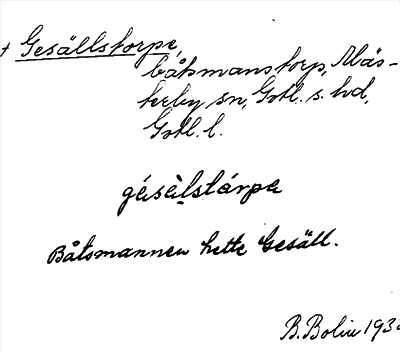 + Gesällstorpe,
båtsmanstorp, Mäs-
terby sn, Gotl. s. hd,
Gotl. l.
gásèlstárpa
Båtsmannen hette Gesäll.
B. Bolin